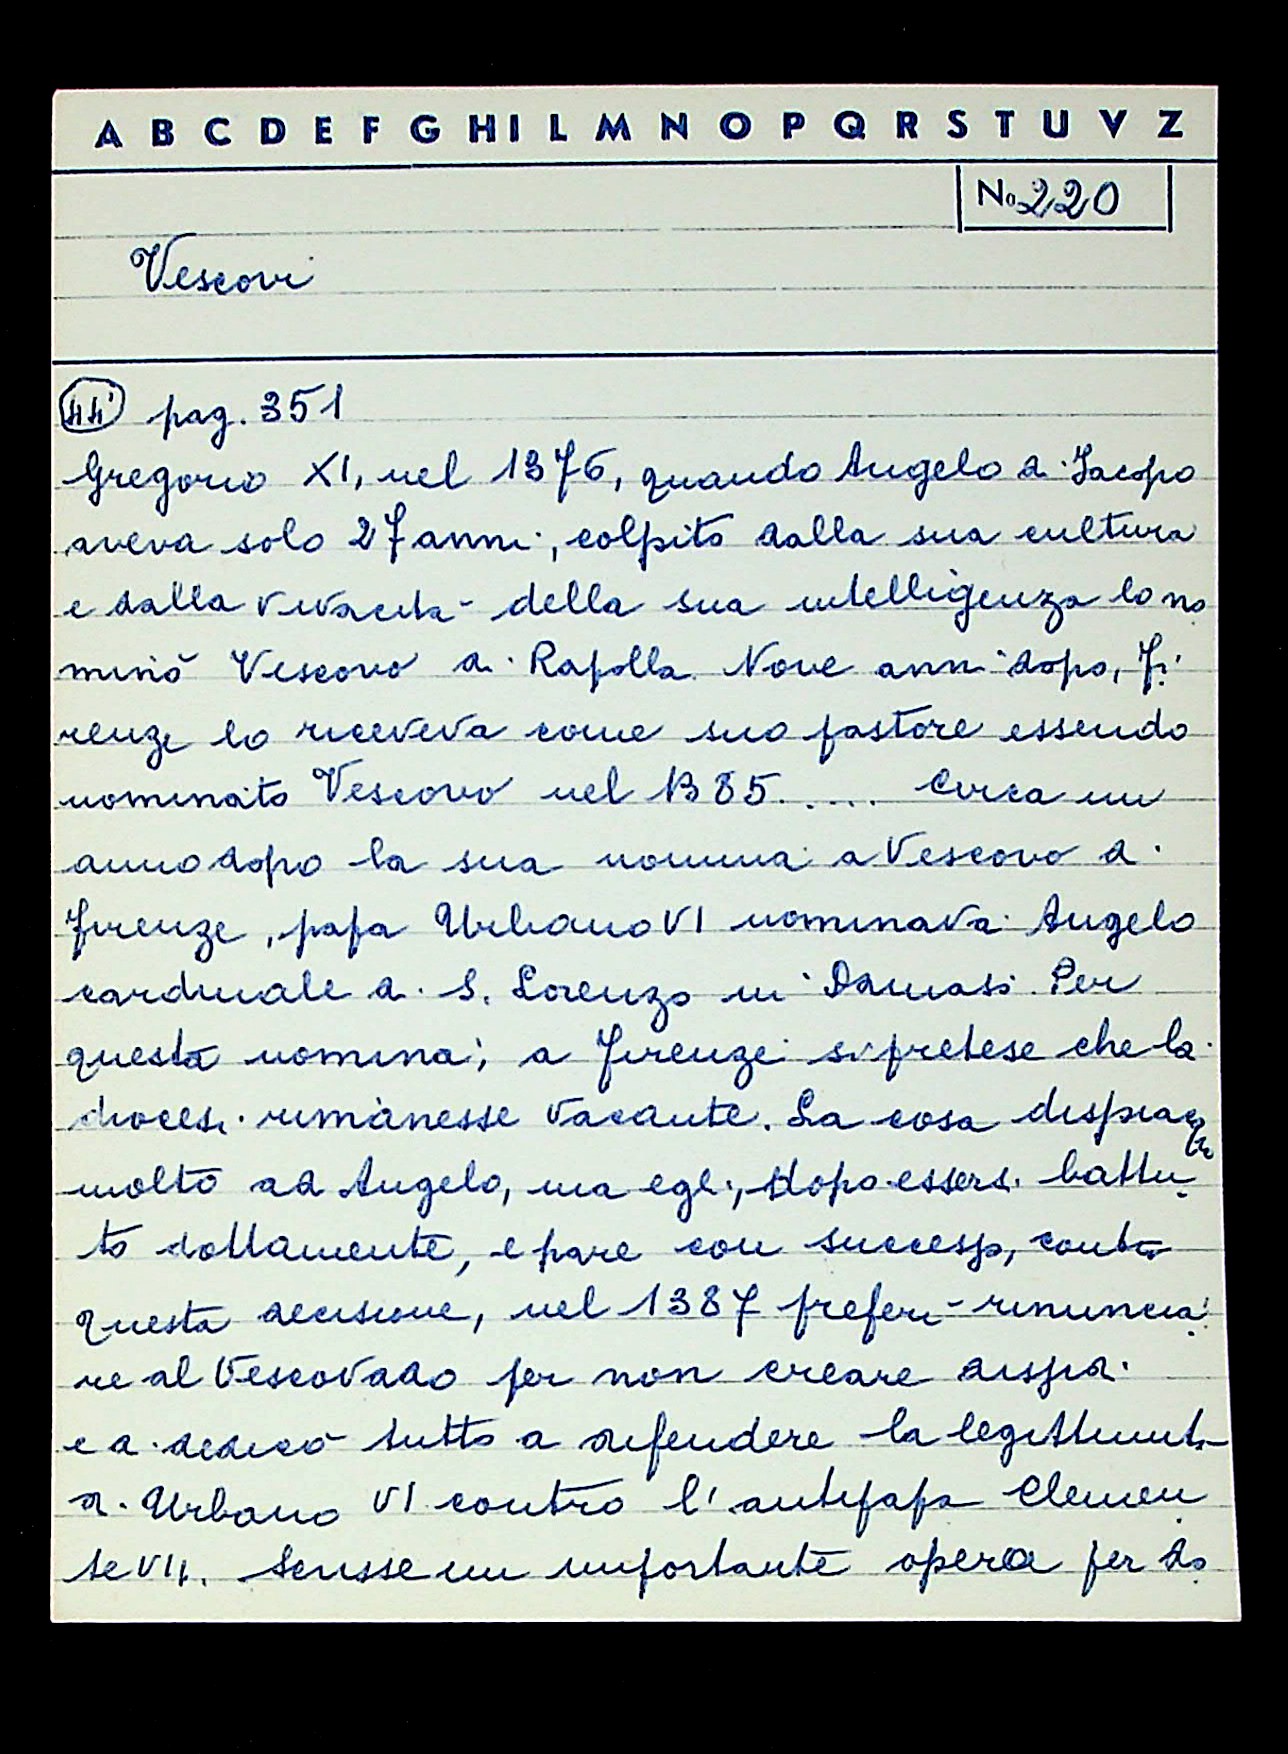 A B C D E F G H I L M N O P Q R S T U V Z
No 220
Vescovi
44 pag. 351
Gregorio XI, nel 1376, quando Angelo di Jacopo
aveva solo 27 anni, colpito dalla sua cultura
e dalla vivacità della sua intelligenza lo no
minò Vescovo di Rapolla. Nove anni dopo, Fi
renze lo riceveva come suo pastore essendo
nominato Vescovo nel 1385..... Circa un
anno dopo la sua nomina a Vescovo di
Firenze, papa Urbano VI nominava Angelo
cardinale di S. Lorenzo in Damaso. Per
questa nomina, a Firenze si pretese che la
diocesi rimanesse vacante. La cosa dispiacque
molto ad Angelo, ma egli, dopo essersi battu
to dottamente, e pare con successo, contro
questa decisione, nel 1387 preferì rinuncia
re al Vescovado per non creare dispidi
e a dedicò tutto a difendere la legittimità
di Urbano VI contro l'antipapa Clemen
te VII. Scrisse un importante opera per do